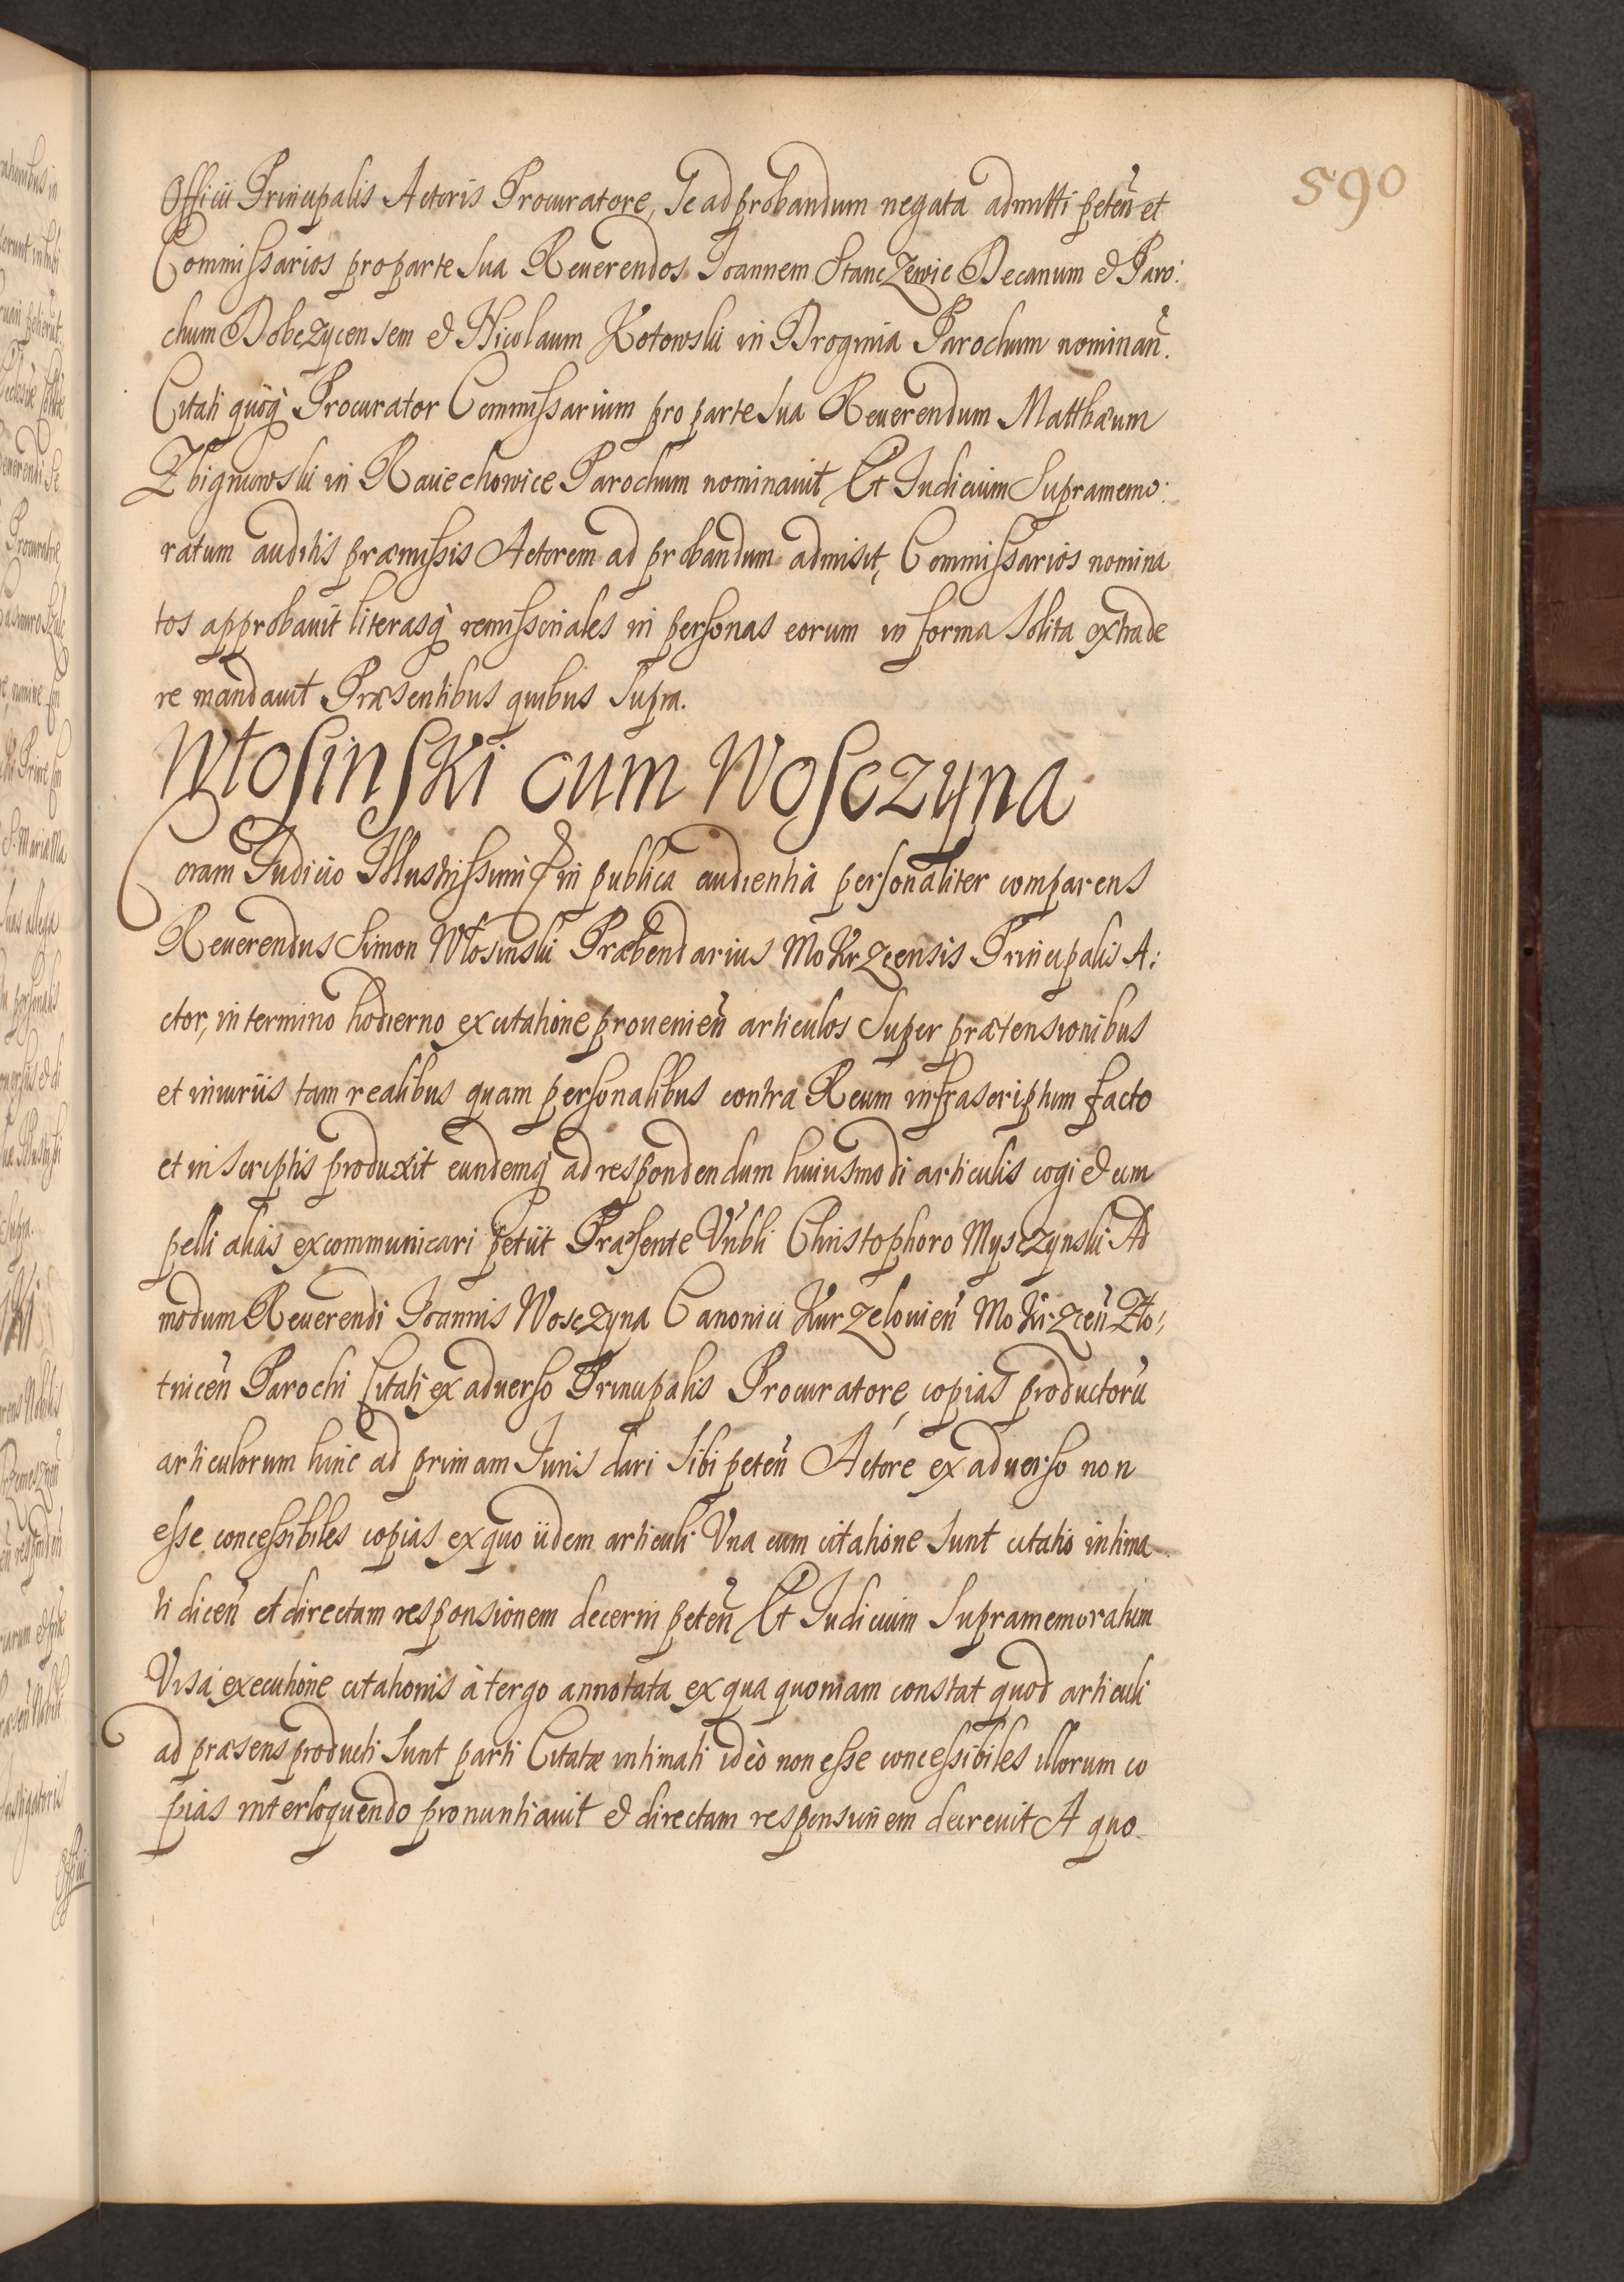 590
Officii Principalis Actoris Procuratore, Se ad probandum negata admitti peteñ et
Commissarios pro parte sua Reuerendos Joannem Stanczewic Decanum & Paro:
chum Dobczycensem & Nicolaum Kotowski in Droginia Parochum nominañ.
Citati quoq̀ Procurator Commissarium pro parte sua Reuerendum Matthæum
Zbigniowski in Raciechowice Parochum nominauit, Et Judicium Supramemo:
ratum auditis præmissis Actorem ad probandum admisit, Commissarios nomina
tos approbauit literasq̀ remissoriales in personas eorum in forma solita extrade
re mandauit Præsentibus quibus supra.
Włosinski cum Wosczyna
Coram Judicio Illustrissimi & in publica audientia personaliter comparens
Reuerendus Simon Włosinski Præbendarius Mokrzcensis Principalis A:
ctor, in termino hodierno ex citatione prouenieñ articulos super prætensionibus
et iniuriis tam realibus quam personalibus contra Reum infrascriptum facto
et in scriptis produxit eundemq̀ ad respondendum huiusmodi articulis cogi & com
pelli alias excommunicari petiit Præsente Vñbli Christophoro Mysczynski Ad
modum Reuerendi Joannis Wosczyna Canonici Kurzelouieñ Mokrzceñ Zło:
tniceñ Parochi Citati ex aduerso Principalis Procuratore, copias productorũ
articulorum hinc ad primam Juris dari sibi peteñ Actore ex aduerso non
esse concessibiles copias ex quo iidem articuli Vna cum citatione sunt citato intima
ti diceñ et directam responsionem decerni peteñ Et Judicium Supramemoratum
Visa executione citationis à tergo annotata ex qua quoniam constat quod articuli
ad præsens producti sunt parti Citatæ intimati ideò non esse concessibiles illorum co
pias interloquendo pronuntiauit & directam responsionem decreuit A quo